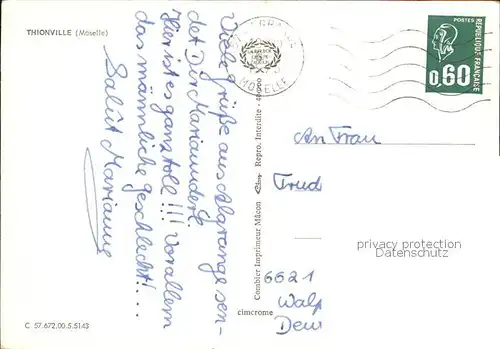 THIONVILLE (Moselle)
Viele Grüße aus Algrange sen-
det Dir Marianndel.
Hier ist es ganz toll !!! Vorallem
das männliche Geschlecht!...
Salut Marianne
C 57.672.00.5.5143
Combier Imprimeur Mâcon
Repro. Interdite - 40000
cimcrome
MOSELLE
POSTES
REPUBLIQUE FRANÇAISE
0,60
An Frau
Trud
6621
Walp
Deu
privacy protection
Datenschutz